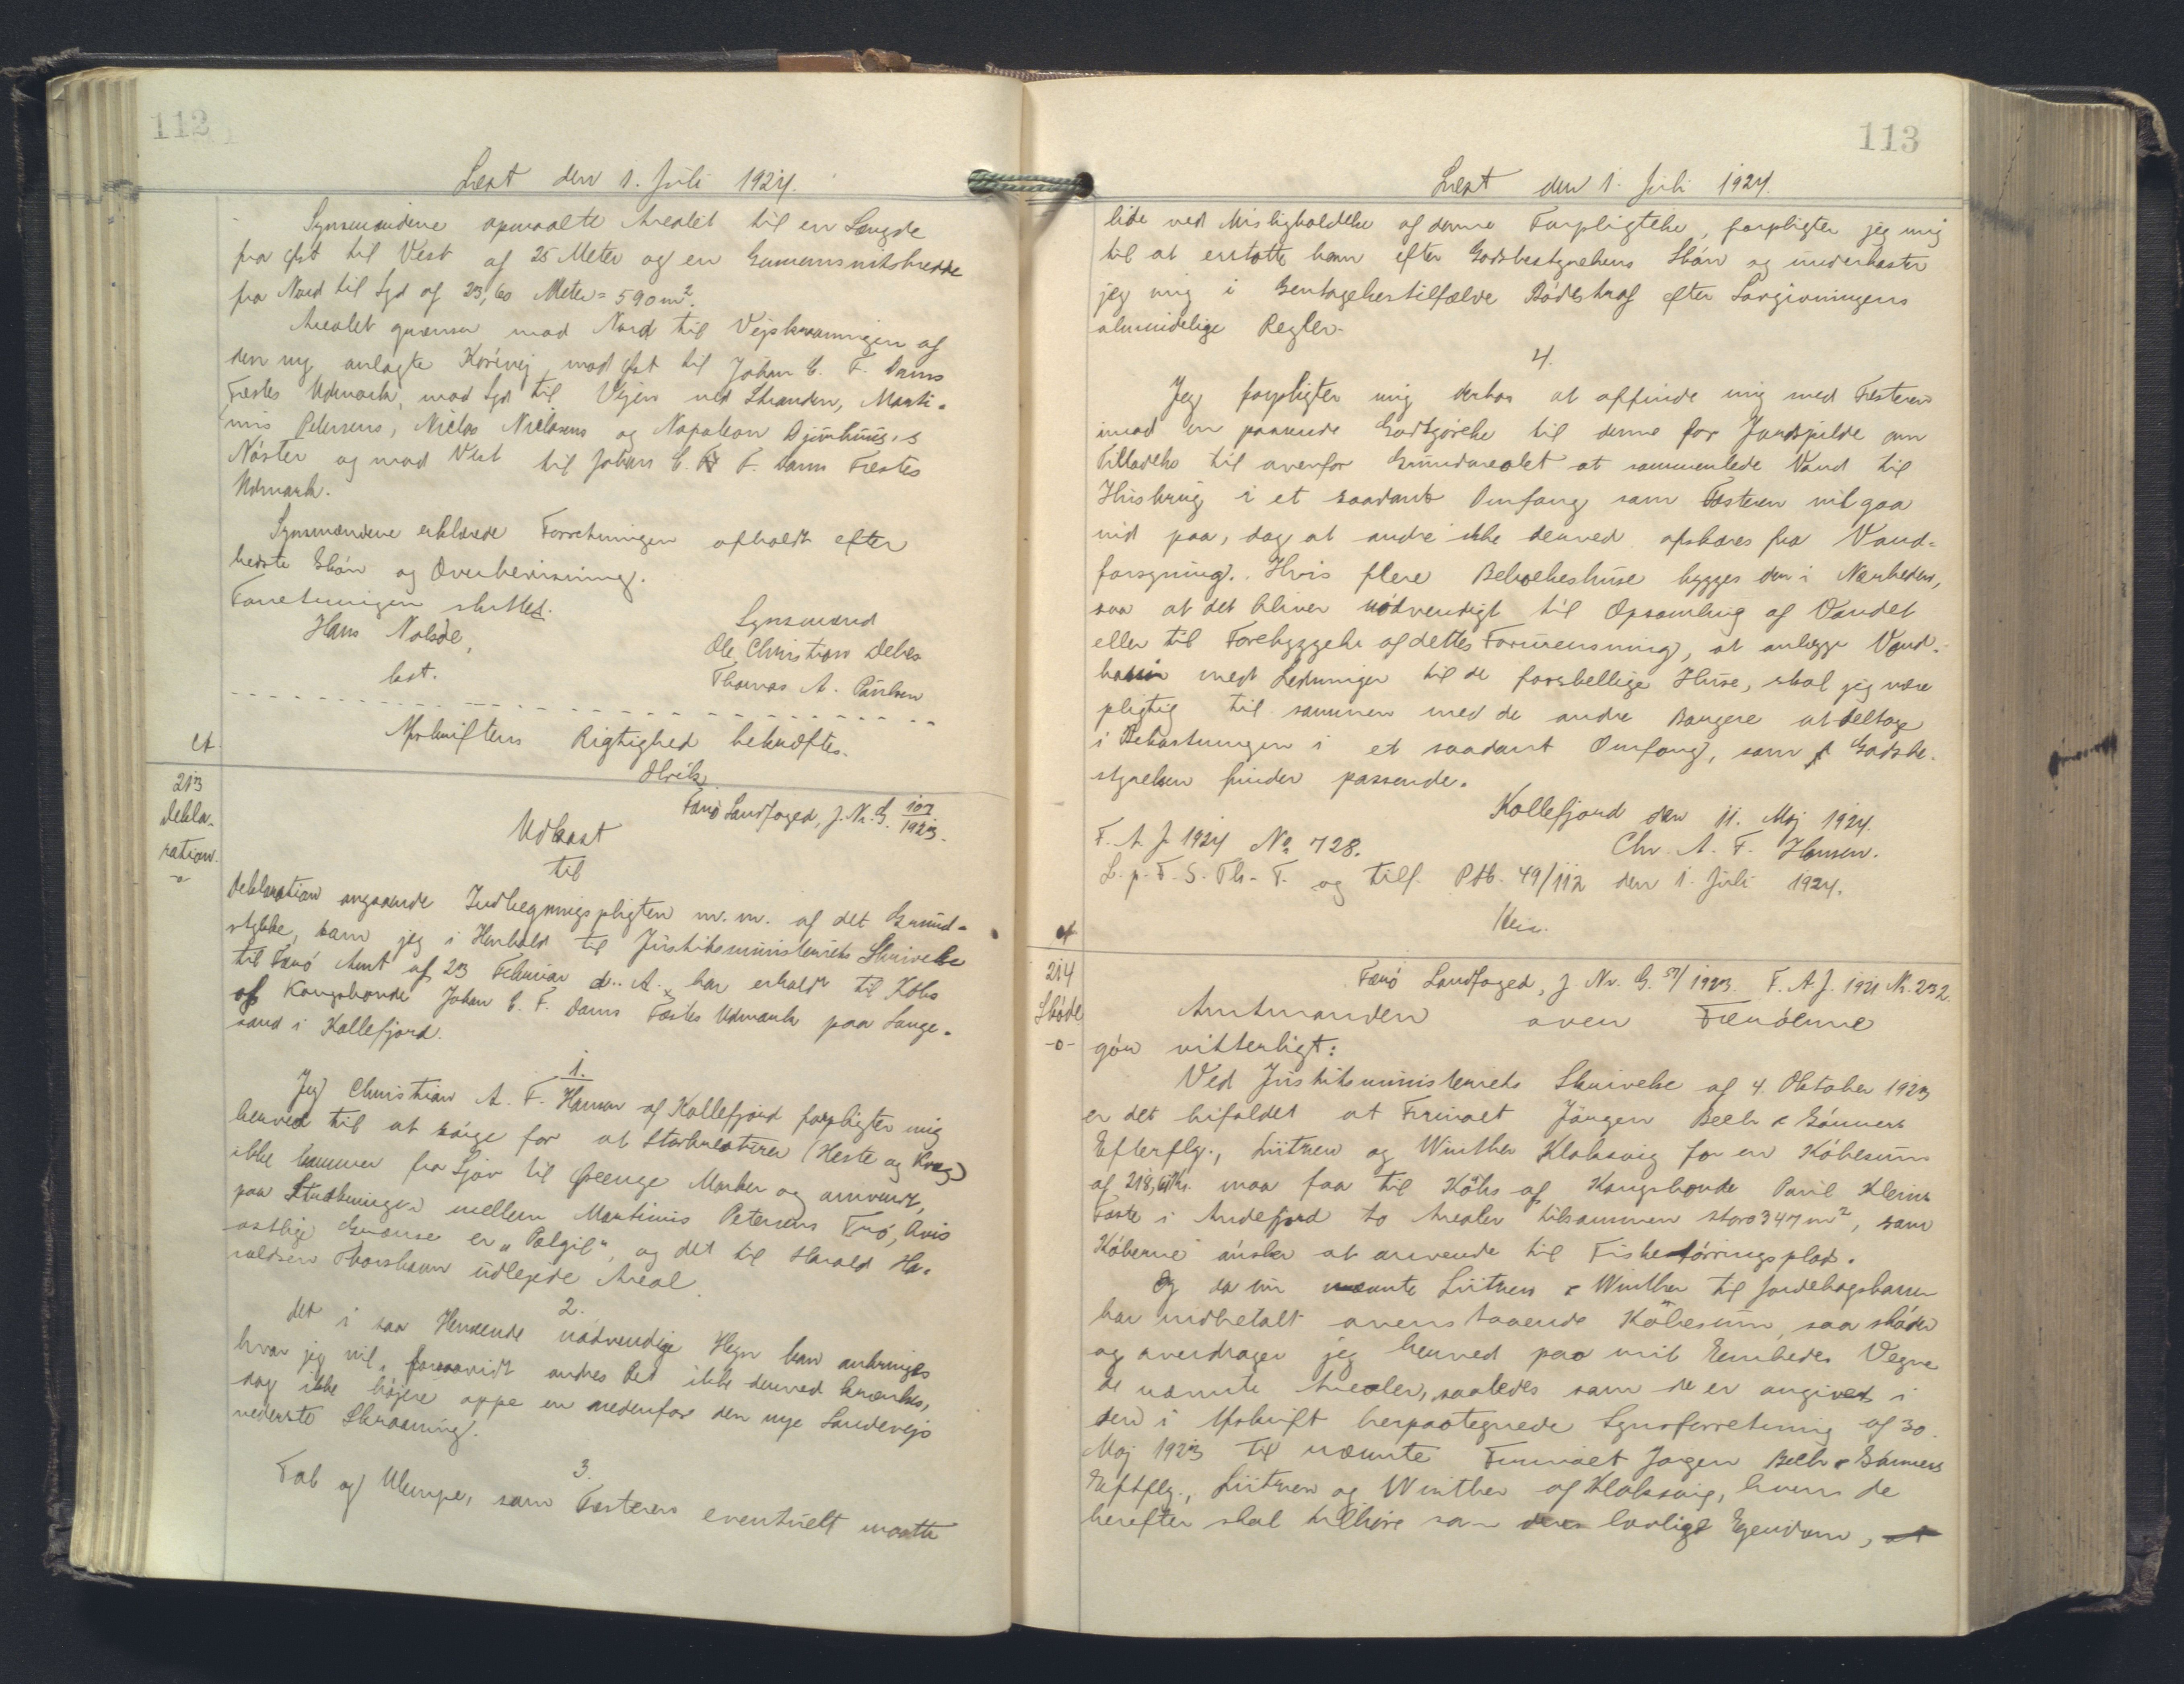 112
Læst den 1. Juli 1924.
Synsmændene opmaalte Arealet til en Længde
fra Øst til Vest af 25 Meter og en Gennemsnitsbredde
fra Nord til Syd af 23,60 Meter = 590 m².
Arealet grænser mod Nord til Vejskraaningen af
den ny anlagte Kørevej, mod Øst til Johan E. F. Dams
Fæstes Udmark, mod Syd til Vejen ved Stranden, Marti-
nus Petersens, Niclas Niclasens og Napoleon Djurhuus's
Nøster og mod Vest til Johan E. F. Dams Fæstes
Udmark.
Synsmændene erklærede Forretningen afholdt efter
bedste Skøn og Overbevisning.
Forretningen sluttet.
Hans Nolsøe,
kst.
Synsmænd
Ole Christian Debes
Thomas A. Paulsen
Afskriftens Rigtighed bekræftes.
213
Dekla-
ration.
-o-
Færø Landfoged, J. Nr. G. 107/1923.
Udkast
til
Deklaration angaaende Indhegningspligten m.m. af det Grund-
stykke, som jeg i Henhold til Justitsministeriets Skrivelse
til Færø Amt af 23 Februar d. A. har erholdt til Købs
af Kongsbonde Johan E. F. Dams Fæstes Udmark paa Lange-
sand i Kollefjord.
1.
Jeg Christian A. F. Hansen af Kollefjord forpligter mig
herved til at sørge for at Storkreaturer (Heste og Kvæg)
ikke kommer fra Sjov til Øreenge Marker og omvendt,
paa Strækningen mellem Martinus Petersens Trø, hvis
østlige Grænse er "Pølgil", og det til Harald Ha-
raldsen Thorshavn udlejede Areal.
2.
Det i saa Henseende nødvendige Hegn kan anbringes
hvor jeg vil, forsaavidt andres Ret ikke derved krænkes,
dog ikke højere oppe en nedenfor den nye Landevejs
nederste Skraaning.
3.
Tab og Ulempe, som Fæsteren eventuelt maatte
113
Læst den 1. Juli 1924.
lide ved Misligholdelse af denne Forpligtelse, forpligter jeg mig
til at erstatte ham efter Godsbestyrelsens Skøn og underkaster
jeg mig i Gentagelsestilfælde Bødestraf efter Lovgivningens
almindelige Regler.
4.
Jeg forpligter mig derhos at affinde mig med Fæsteren
imod en passende Godtgørelse til denne for Jordspilde om
Tilladelse til ovenfor Grundarealet at sammenlede Vand til
Husbrug i et saadant Omfang som Fæsteren vil gaa
ind paa, dog at andre ikke derved afskæres fra Vand-
forsyning. Hvis flere Beboelseshuse bygges der i Nærheden,
saa at det bliver nødvendigt til Opsamling af Vandet
eller til Forebyggelse af dettes Forurensning, at anlægge Vand-
med Ledninger til de forskellige Huse, skal jeg være
pligtig til sammen med de andre Brugere at deltage
i Bekostningen i et saadant Omfang, som Godsbe-
styrelsen finder passende.
Kollefjord den 11. Maj 1924.
F. A. J. 1924 No 728.
Chr. A. F. Hansen.
L. p. F. S. Th. T. og tilf. Ptb. 49/112 den 1. Juli 1924.
214
Skøde
-o-
Færø Landfoged, J. Nr. G. 57/1923. F. A. J. 1921 Nr. 232.
Amtmanden over Færøerne
gør vitterligt:
Ved Justitsministeriets Skrivelse af 4. Oktober 1923
er det bifaldet at Firmaet Jørgen Bech & Sønners
Efterflg., Lützen og Winther Klaksvig for en Købesum
af 218,61 Kr. maa faa til Købs af Kongsbonde Poul Kleins
Fæste i Andefjord to Arealer tilsammen store 347 m², som
Køberne ønsker at anvende til Fisketørringsplads.
Og da nu nævnte Lützen & Winther til Jordebogskassen
har indbetalt ovenstaaende Købesum, saa skøder
og overdrager jeg herved paa mit Embedes Vegne
de nævnte Arealer, saaledes som de er angivet i
den i Afskrift herpaategnede Synsforretning af 30.
Maj 1923 til nævnte Firmaet Jørgen Bech & Sønners
Eftflg., Lützen og Winther af Klaksvig, hvem de
herefter skal tilhøre som deres lovlige Ejendom,